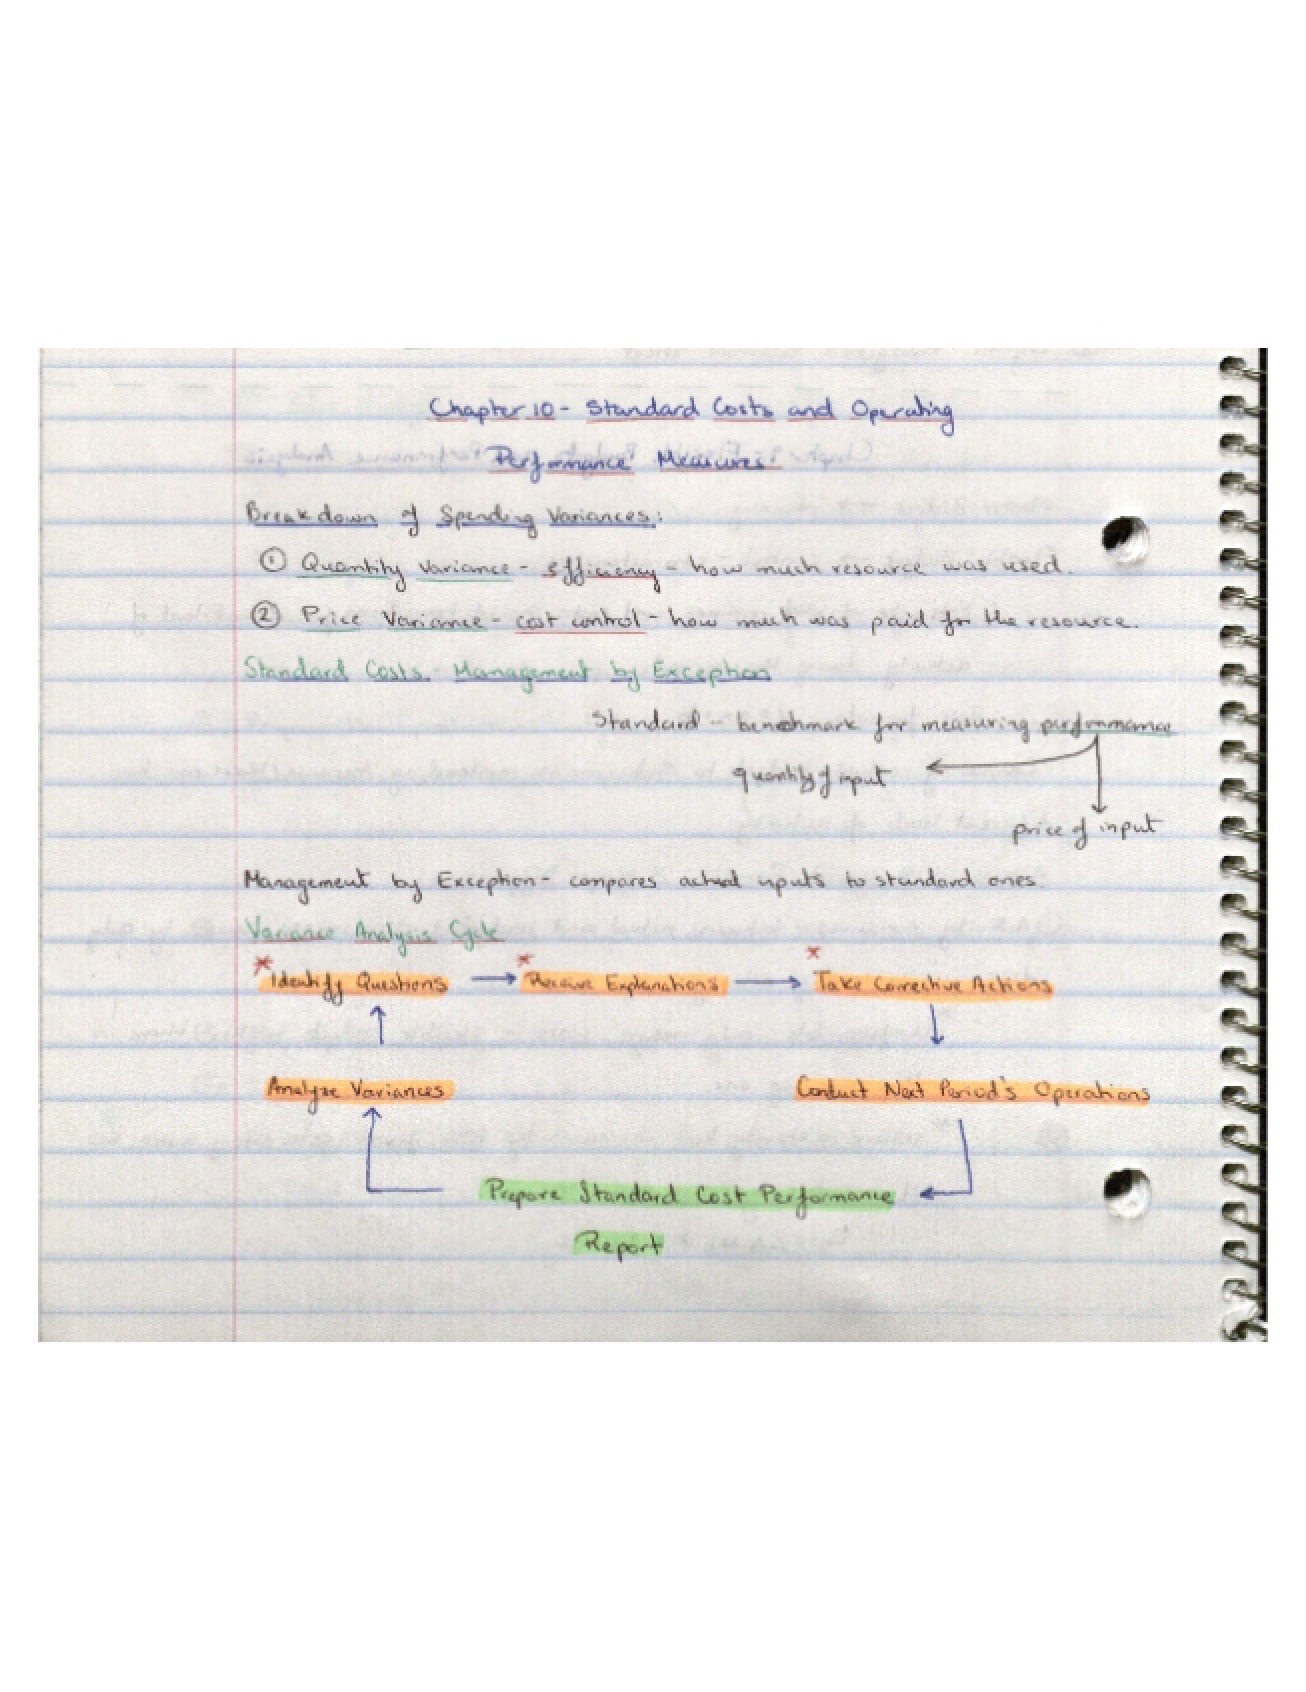 Chapter 10 - Standard Costs and Operating
Performance Measures
Breakdown of Spending Variances:
① Quantity Variance - efficiency - how much resource was used.
② Price Variance - cost control - how much was paid for the resource.
Standard Costs - Management by Exception
Standard - benchmark for measuring performance
quantity of input
price of input
Management by Exception - compares actual inputs to standard ones.
Variance Analysis Cycle
Identify Questions → Receive Explanations → Take Corrective Actions
Analyze Variances Conduct Next Period's Operations
Prepare Standard Cost Performance
Report